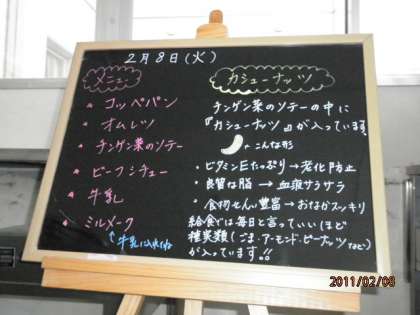 2月8日(火)
メニュー
コッペパン
オムレツ
チンゲン菜のソテー
ビーフシチュー
牛乳
ミルメーク
カシューナッツ
チンゲン菜のソテーの中に
『カシューナッツ』が入っています。
こんな形
・ビタミンEたっぷり→老化防止
・良質な脂→血液サラサラ
・食物せんい豊富→おなかスッキリ
給食では毎日と言っていいほど
種実類(ごま・アーモンド・ピーナッツなど)
が入っています!!
2011/02/08